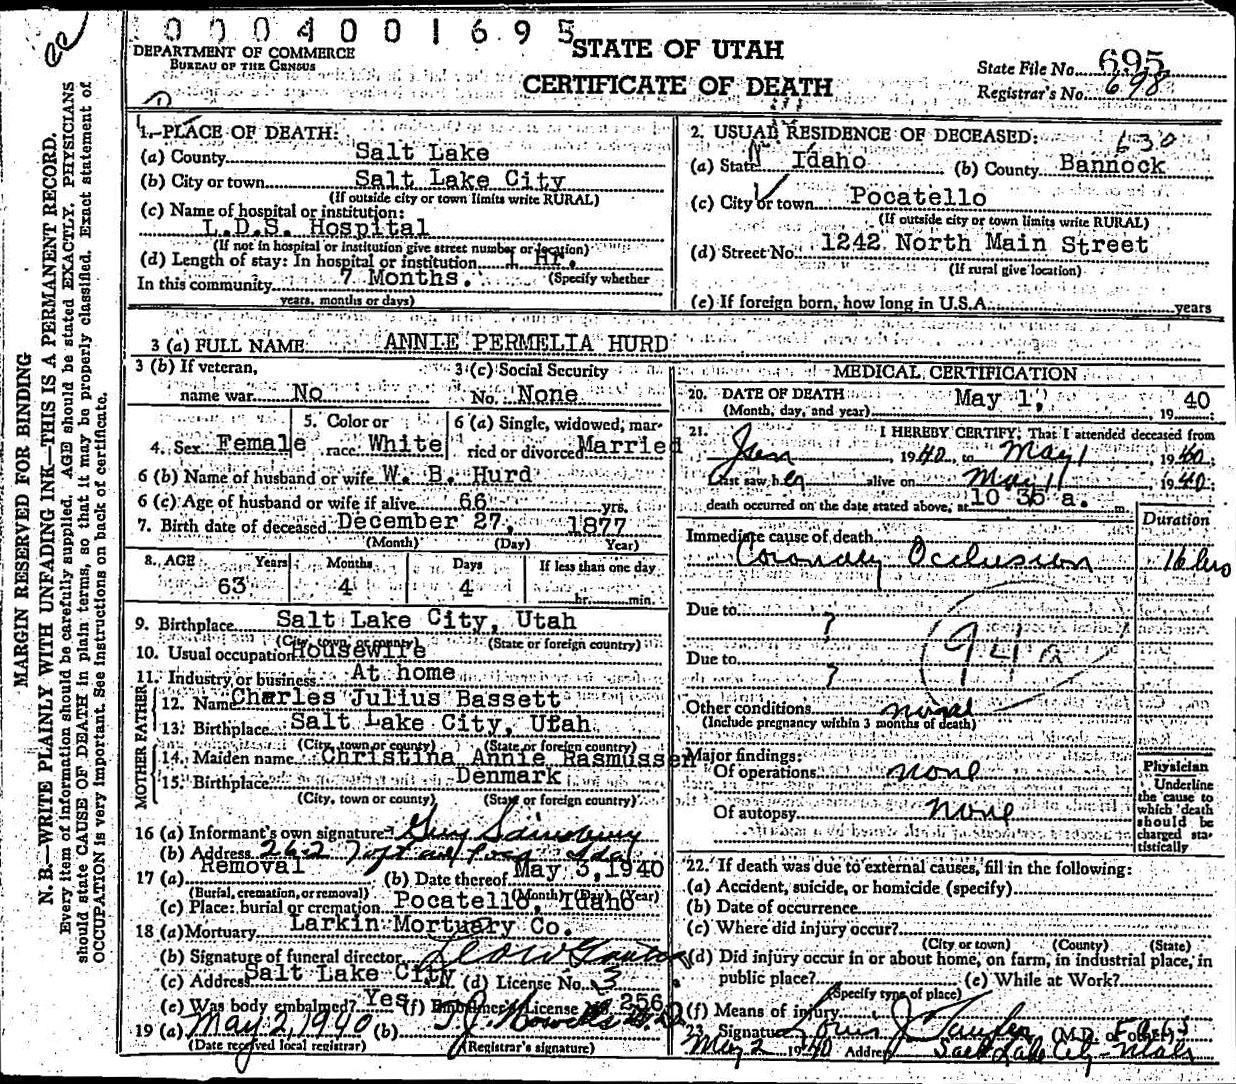 0 0 0 4 0 0 1 6 9 5
DEPARTMENT OF COMMERCE
BUREAU OF THE CENSUS
STATE OF UTAH
CERTIFICATE OF DEATH
State File No. 695
Registrar's No. 698
MARGIN RESERVED FOR BINDING
N. B.—WRITE PLAINLY WITH UNFADING INK—THIS IS A PERMANENT RECORD.
Every item of information should be carefully supplied. AGE should be stated EXACTLY. PHYSICIANS
should state CAUSE OF DEATH in plain terms, so that it may be properly classified. Exact statement of
OCCUPATION is very important. See instructions on back of certificate.
1. PLACE OF DEATH:
(a) County Salt Lake
(b) City or town Salt Lake City
(If outside city or town limits write RURAL)
(c) Name of hospital or institution:
L.D.S. Hospital
(If not in hospital or institution give street number or location)
(d) Length of stay: In hospital or institution 1 Hr.
In this community 7 Months. (Specify whether
years, months or days)
2. USUAL RESIDENCE OF DECEASED: 630
(a) State Idaho (b) County Bannock
(c) City or town Pocatello
(If outside city or town limits write RURAL)
(d) Street No. 1242 North Main Street
(If rural give location)
(e) If foreign born, how long in U.S.A. years
3 (a) FULL NAME ANNIE PERMELIA HURD
3 (b) If veteran,
name war No
3 (c) Social Security
No. None
4. Sex Female
5. Color or
race White
6 (a) Single, widowed, mar-
ried or divorced Married
6 (b) Name of husband or wife W. B. Hurd
6 (c) Age of husband or wife if alive 66 yrs.
7. Birth date of deceased December 27, 1877
(Month) (Day) Year)
8. AGE Years Months Days If less than one day
63 4 4 hr. min.
9. Birthplace Salt Lake City, Utah
(City, town, or county) (State or foreign country)
10. Usual occupation Housewife
11. Industry or business At home
FATHER
12. Name Charles Julius Bassett
13. Birthplace Salt Lake City, Utah
(City, town or county) (State or foreign country)
MOTHER
14. Maiden name Christina Annie Rasmussen
15. Birthplace Denmark
(City, town or county) (State or foreign country)
16 (a) Informant's own signature Guy Sainsbury
(b) Address 262
17 (a) Removal (b) Date thereof May 3, 1940
(Burial, cremation, or removal) (Month) (Day) (Year)
(c) Place: burial or cremation Pocatello, Idaho
18 (a) Mortuary Larkin Mortuary Co.
(b) Signature of funeral director
(c) Address Salt Lake City (d) License No. 3
(e) Was body embalmed? Yes (f) Embalmer's License No. 256
19 (a) May 2, 1940 (b) T. J. Howells M.D.
(Date received local registrar) (Registrar's signature)
MEDICAL CERTIFICATION
20. DATE OF DEATH May 1, 1940
(Month, day, and year)
21. I HEREBY CERTIFY, That I attended deceased from
Jan, 1940, to May 1 1940;
last saw her alive on May 1 1940;
death occurred on the date stated above, at 10 35 a. m.
Duration
Immediate cause of death
Coronary Occlusion 16 hrs
Due to ?
94a
Due to ?
Other conditions none
(Include pregnancy within 3 months of death)
Major findings:
Of operations none
Of autopsy none
Physician
Underline
the cause to
which death
should be
charged sta-
tistically
22. If death was due to external causes, fill in the following:
(a) Accident, suicide, or homicide (specify)
(b) Date of occurrence
(c) Where did injury occur?
(City or town) (County) (State)
(d) Did injury occur in or about home, on farm, in industrial place, in
public place? (e) While at Work?
(Specify type of place)
(f) Means of injury
23. Signature Louis J. (M.D. or other)
May 2 1940 Address Salt Lake City - Utah